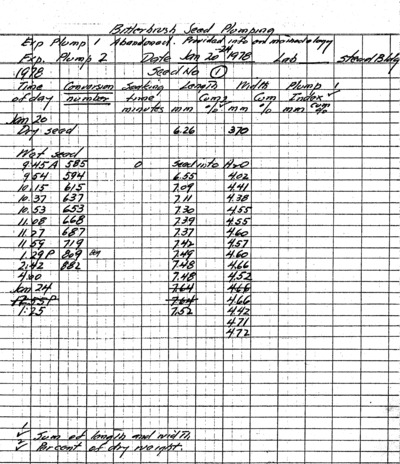 Bitterbrush Seed Plumping
Exp Plump 1 Abandoned. Provided into on
Exp. Plump 2 Date Jan 20 1978 Lab Steward Bldg
1978 Seed No 1
Time Conversion Soaking Length Width Plump 1
of day number time Cum 2 Cum Index
minutes mm % mm % mm cum %
Jan 20
Dry seed 6.26 370
Wet seed
9:45 A 585 0 Seed into H2O
9:54 594 6.55 4.02
10:15 615 7.09 4.41
10:37 637 7.11 4.38
10:53 653 7.30 4.55
11:08 668 7.39 4.55
11:27 687 7.37 4.60
11:59 719 7.42 4.57
1:29 P 809 7.49 4.60
2:42 882 7.48 4.66
4:00 7.48 4.52
Jan 24 7.64 4.66
12:55 P 7.64 4.66
1:25 7.52 4.42
4.71
4.72
1 Sum of length and width
2 Percent of dry weight.